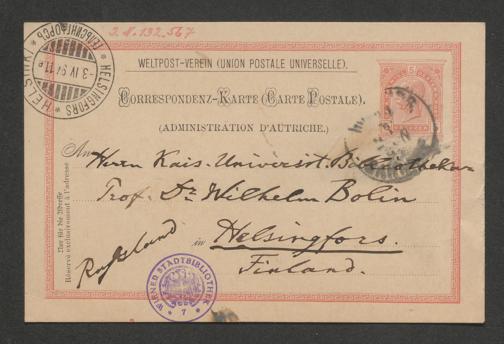 J.N. 132.567
WELTPOST-VEREIN (UNION POSTALE UNIVERSELLE).
CORRESPONDENZ-KARTE (CARTE POSTALE).
(ADMINISTRATION D'AUTRICHE).
5
HELSINGFORS
-3 IV 94 11 E
An Herrn Kais. Universit. Bibliothekar
Prof. Dr Wilhelm Bolin
in Helsingfors.
Russland
Finland.
Nur für die Adresse
Réservé exclusivement à l'adresse
WIENER STADTBIBLIOTHEK
* 7 *